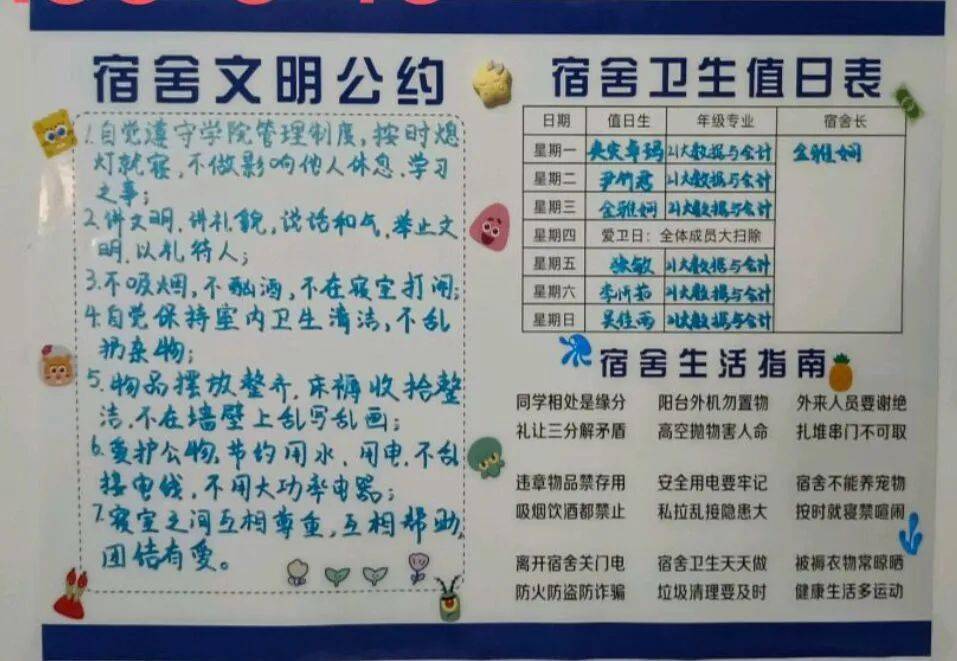 宿舍文明公约
1.自觉遵守学院管理制度,按时熄
灯就寝,不做影响他人休息、学习
之事;
2.讲文明,讲礼貌,说话和气,举止文
明,以礼待人;
3.不吸烟,不酗酒,不在寝室打闹;
4.自觉保持室内卫生清洁,不乱
扔杂物;
5.物品摆放整齐,床褥收拾整
洁,不在墙壁上乱写乱画;
6.爱护公物,节约用水、用电,不乱
接电线,不用大功率电器;
7.寝室之间互相尊重,互相帮助,
团结有爱。
宿舍卫生值日表
日期 值日生 年级专业 宿舍长
星期一 卓玛 21大数据与会计 金雅娴
星期二 尹竹君 21大数据与会计
星期三 金雅娴 21大数据与会计
星期四 爱卫日:全体成员大扫除
星期五 敏 21大数据与会计
星期六 李忻茹 21大数据与会计
星期日 吴佳雨 21大数据与会计
宿舍生活指南
同学相处是缘分 阳台外机勿置物 外来人员要谢绝
礼让三分解矛盾 高空抛物害人命 扎堆串门不可取
违章物品禁存用 安全用电要牢记 宿舍不能养宠物
吸烟饮酒都禁止 私拉乱接隐患大 按时就寝禁喧闹
离开宿舍关门电 宿舍卫生天天做 被褥衣物常晾晒
防火防盗防诈骗 垃圾清理要及时 健康生活多运动